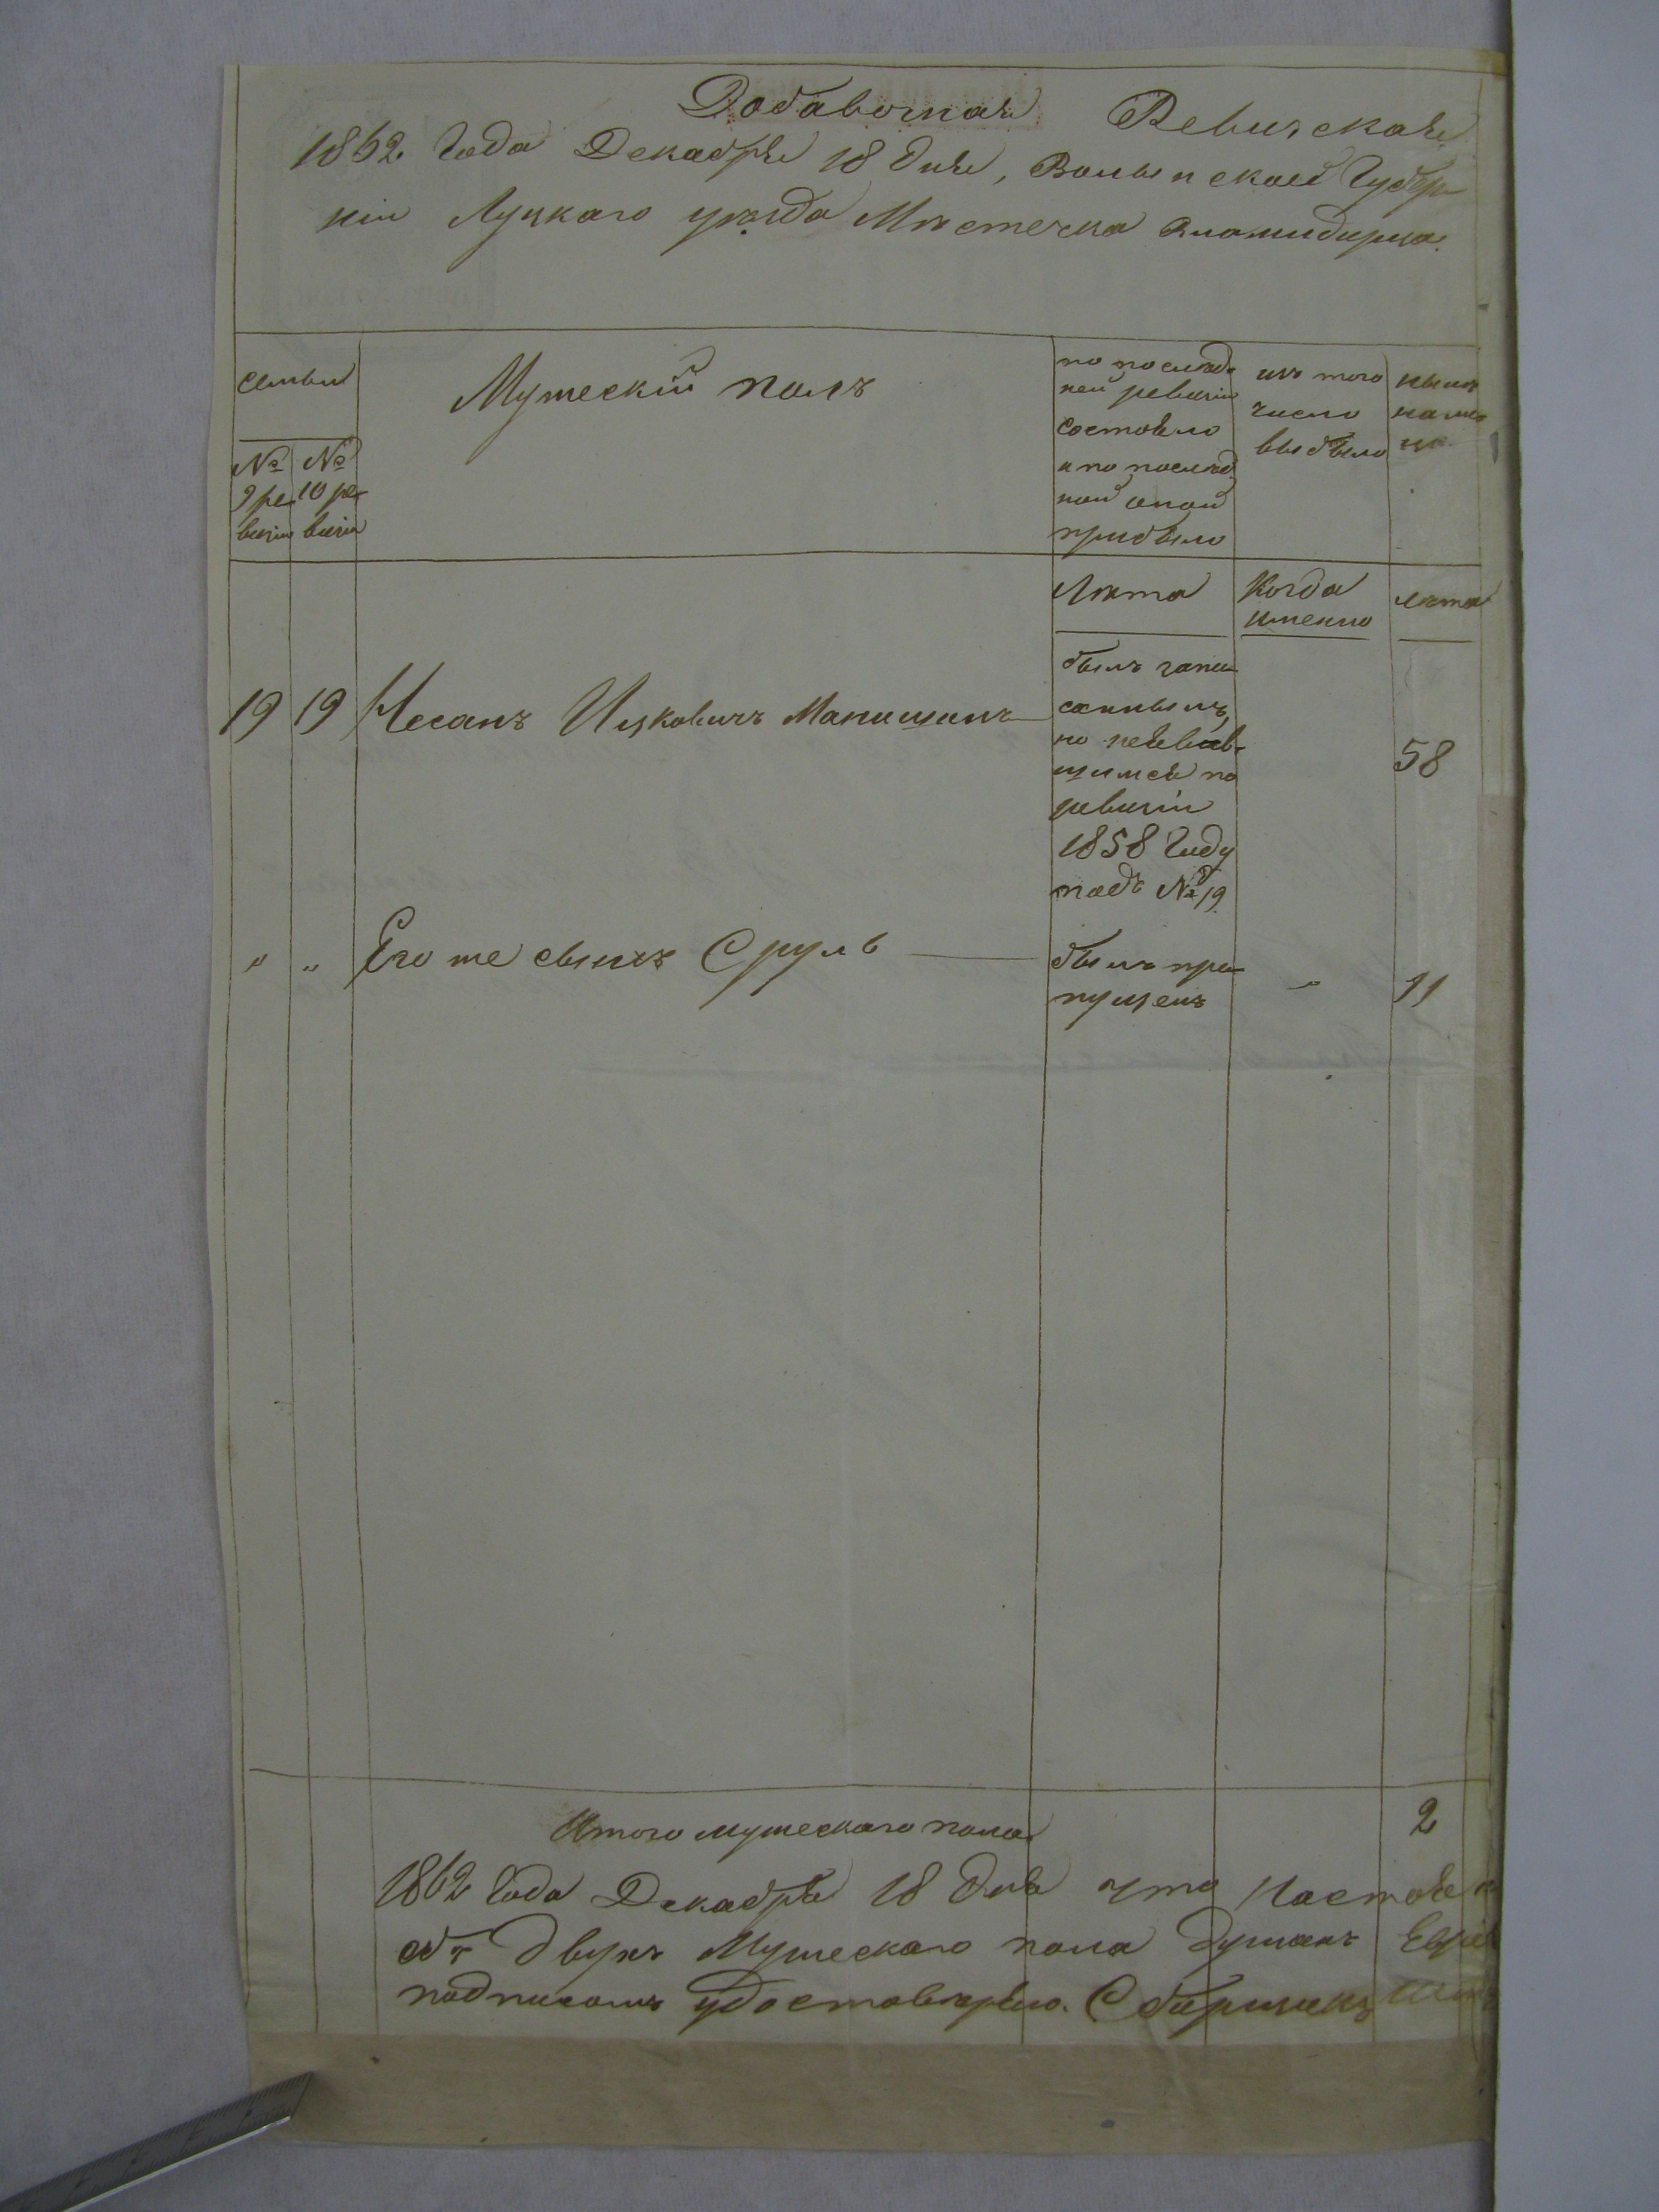 Добавочная Ревизская
1862 Года Декабря 18 дня, Волынской Губер
ніи Луцкаго уѣзда Мѣстечка
семьи
№ 9 ре
визіи
№ 10 ре
визіи
Мужескій полъ
по послѣд
ней ревизіи
состояло
и по послѣд
ней оной
прибыло
изъ того
число
выбыло
нынѣ
на ли
цо
Лѣта
Когда
именно
лѣта
19 19 Несанъ Ицковичъ
былъ запи
саннымъ
по неявив
шимся по
ревизіи
1858 Году
подъ № 19
58
„ „ Его же сынъ Сруль
былъ про
пущенъ
„
11
Итого мужескаго пола 2
1862 Года Декабря 18 дня что Настоя
объ двухъ Мужескаго пола душахъ Еврей
подписомъ удостовѣряю. Сборщикъ